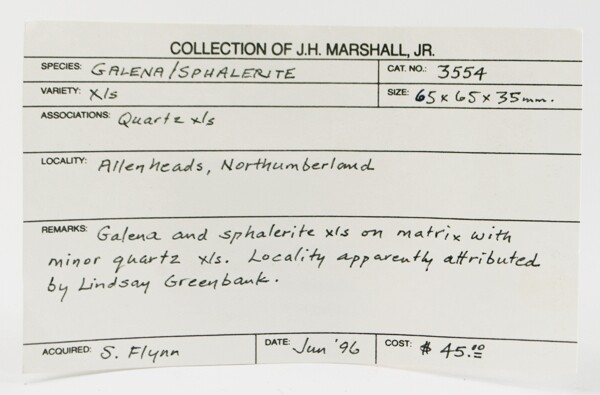 COLLECTION OF J.H. MARSHALL, JR.
SPECIES: GALENA/SPHALERITE CAT. NO.: 3554
VARIETY: Xls SIZE: 65x65x35mm.
ASSOCIATIONS: Quartz xls
LOCALITY: Allenheads, Northumberland
REMARKS: Galena and sphalerite xls on matrix with
minor quartz xls. Locality apparently attributed
by Lindsay Greenbank.
ACQUIRED: S. Flynn DATE: Jun '96 COST: $ 45.00